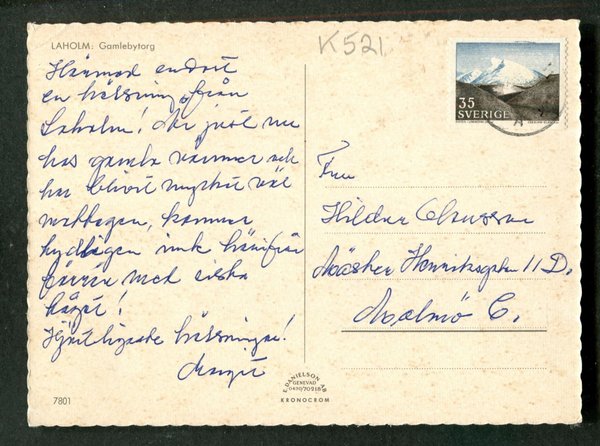 LAHOLM: Gamlebytorg
K521
Härmed endast
en hälsning från
Laholm! Är just nu
hos gamla vänner och
har blivit mycket väl
mottagen, kommer
tydligen inte härifrån
förrän med siska
tåget!
Hjärtligaste hälsningar!
Margit
7801
35
SVERIGE
Fru
Hildur Clausson
Mäster Henriksgatan 11 D.
Malmö C.
E. DANIELSON AB
GENEVAD
0430/70218
KRONOCROM